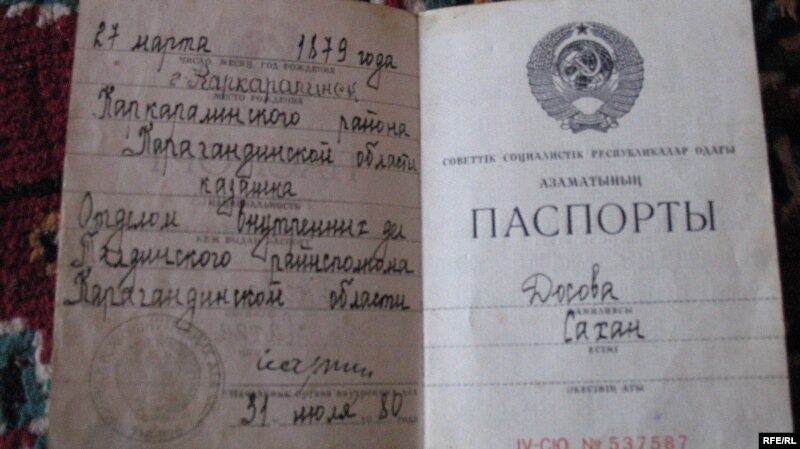 27 марта 1879 года
ЧИСЛО, МЕСЯЦ, ГОД РОЖДЕНИЯ
г. Каркаралинск
МЕСТО РОЖДЕНИЯ
Каркаралинского района
Карагандинской области
казашка
НАЦИОНАЛЬНОСТЬ
Отделом внутренних дел
КЕМ ВЫДАН ПАСПОРТ
Талдинского райисполкома
Карагандинской области
Начальник органа внутренних дел
31 июля 1980 года
СОВЕТТІК СОЦИАЛИСТІК РЕСПУБЛИКАЛАР ОДАҒЫ
АЗАМАТЫНЫҢ
ПАСПОРТЫ
Досова
ФАМИЛИЯСЫ
Сахан
ЕСІМІ
ӘКЕСІНІҢ АТЫ
IV-СЮ № 537587
RFE/RL